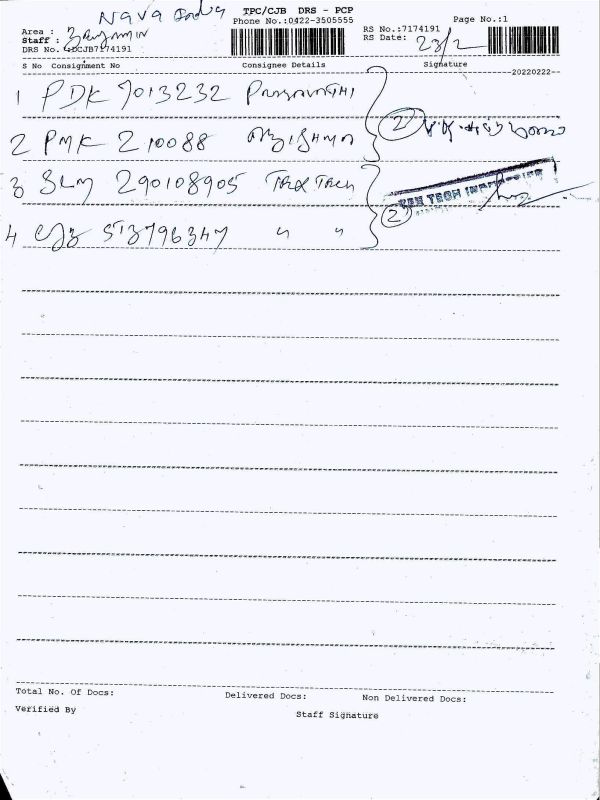 Nava India
TPC/CJB DRS - PCP
Phone No.:0422-3505555
Page No.:1
Area :
Staff :
RS No.:7174191
DRS No. 4DCJB7174191
RS Date: 23/2
S No Consignment No Consignee Details Signature
20220222
1 PDK 7013232
2 PMK 210088
3 SLM 290108905 Trex Tech
4 CJB ST3796347 " "
2
TECH
2
Total No. Of Docs: Delivered Docs: Non Delivered Docs:
Verified By Staff Signature